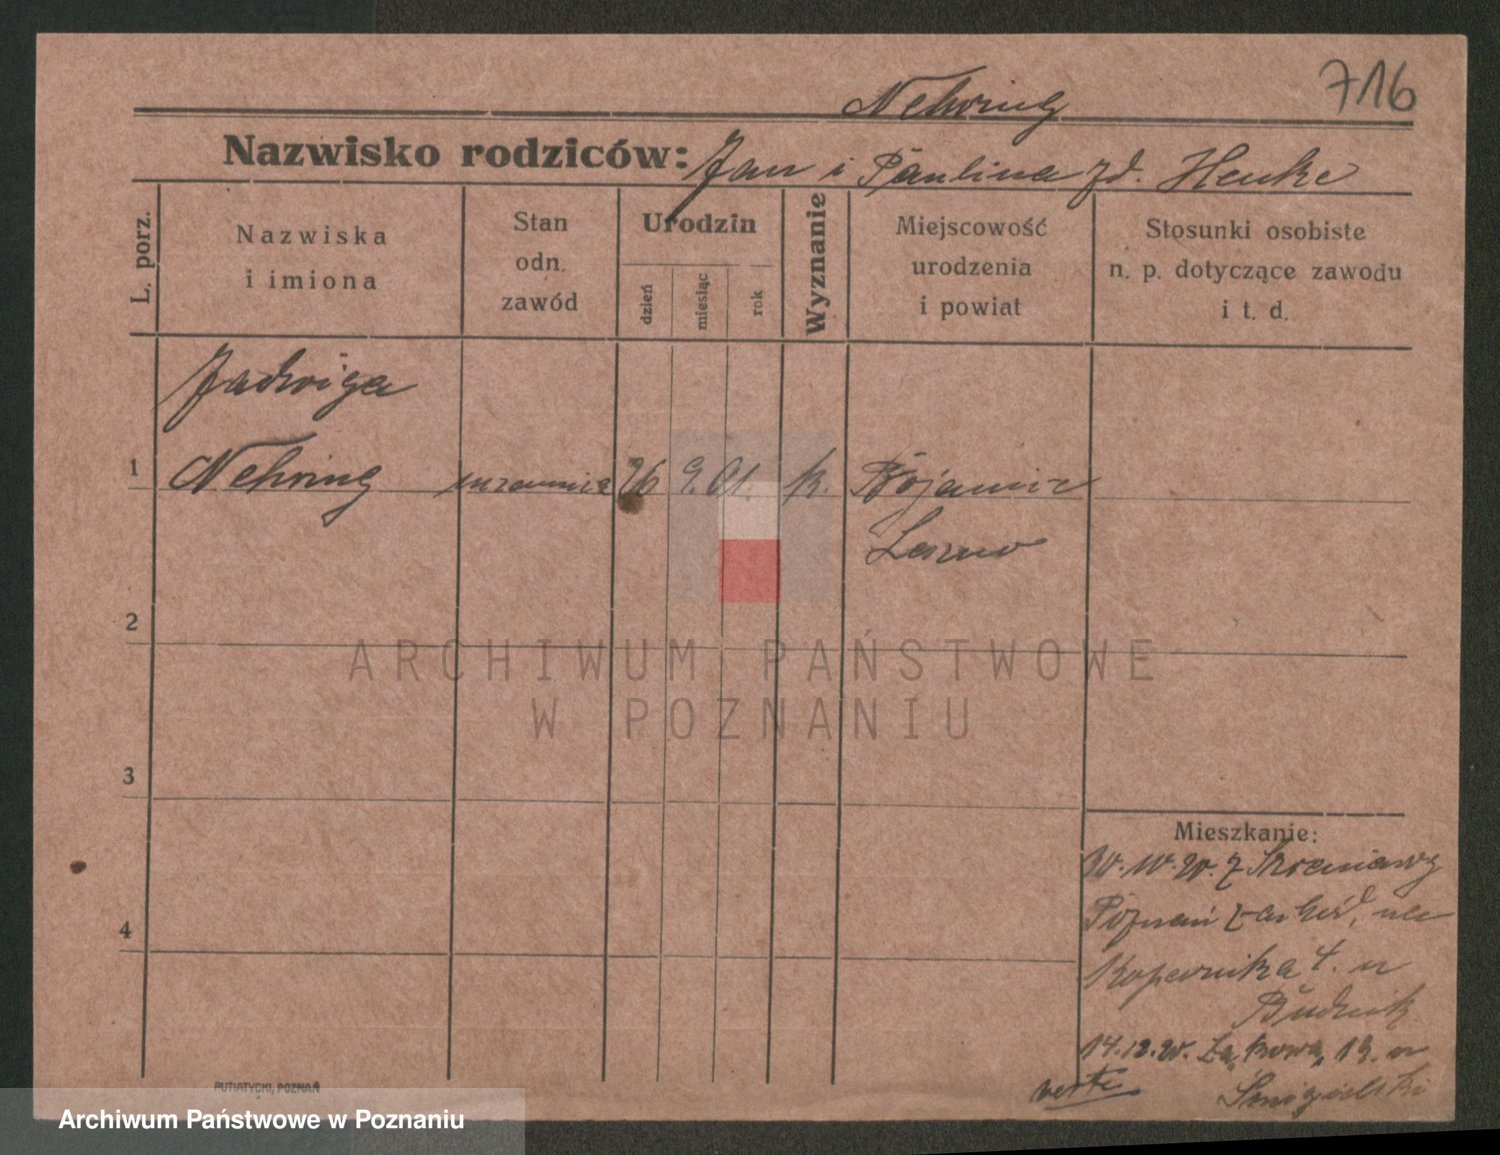 716
Nehring
Nazwisko rodziców: Jan i Paulina zd. Henke
L. porz.
Nazwiska
i imiona
Stan
odn.
zawód
Urodzin
dzień
miesiąc
rok
Wyznanie
Miejscowość
urodzenia
i powiat
Stosunki osobiste
n. p. dotyczące zawodu
i t. d.
Jadwiga
1 Nehring 26 9. 01. k. Bojanice
Leszno
2
3
4
Mieszkanie:
Poznań ul.
Kopernika 4. u
Budnik
14.12.20. Łąkowa 19. u
Śmigielski
verte
PUTIATYCKI, POZNAŃ
ARCHIWUM PAŃSTWOWE
W POZNANIU
Archiwum Państwowe w Poznaniu